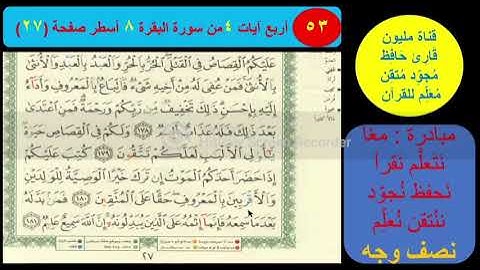 ٥٣
أربع آيات ٤ من سورة البقرة ٨ أسطر صفحة (٢٧)
قناة مليون
قارئ حافظ
مُجوّد مُتقن
مُعلّم للقرآن
مبادرة : معًا
نَتعلّم نقرأ
نَحفظ نُجوّد
نُتقن نُعلّم
نصف وجه
عَلَيْكُمُ الْقِصَاصُ فِي الْقَتْلَى الْحُرُّ بِالْحُرِّ وَالْعَبْدُ بِالْعَبْدِ وَالْأُنثَى
بِالْأُنثَى فَمَنْ عُفِيَ لَهُ مِنْ أَخِيهِ شَيْءٌ فَاتِّبَاعٌ بِالْمَعْرُوفِ وَأَدَاءٌ
إِلَيْهِ بِإِحْسَانٍ ذَلِكَ تَخْفِيفٌ مِّن رَّبِّكُمْ وَرَحْمَةٌ فَمَنِ اعْتَدَى
بَعْدَ ذَلِكَ فَلَهُ عَذَابٌ أَلِيمٌ ١٧٨ وَلَكُمْ فِي الْقِصَاصِ حَيَاةٌ
يَا أُولِي الْأَلْبَابِ لَعَلَّكُمْ تَتَّقُونَ ١٧٩ كُتِبَ عَلَيْكُمْ
إِذَا حَضَرَ أَحَدَكُمُ الْمَوْتُ إِن تَرَكَ خَيْرًا الْوَصِيَّةُ لِلْوَالِدَيْنِ
وَالْأَقْرَبِينَ بِالْمَعْرُوفِ حَقًّا عَلَى الْمُتَّقِينَ ١٨٠ فَمَن بَدَّلَهُ
بَعْدَمَا سَمِعَهُ فَإِنَّمَا إِثْمُهُ عَلَى الَّذِينَ يُبَدِّلُونَهُ إِنَّ اللَّهَ سَمِيعٌ عَلِيمٌ ١٨١
٢٧